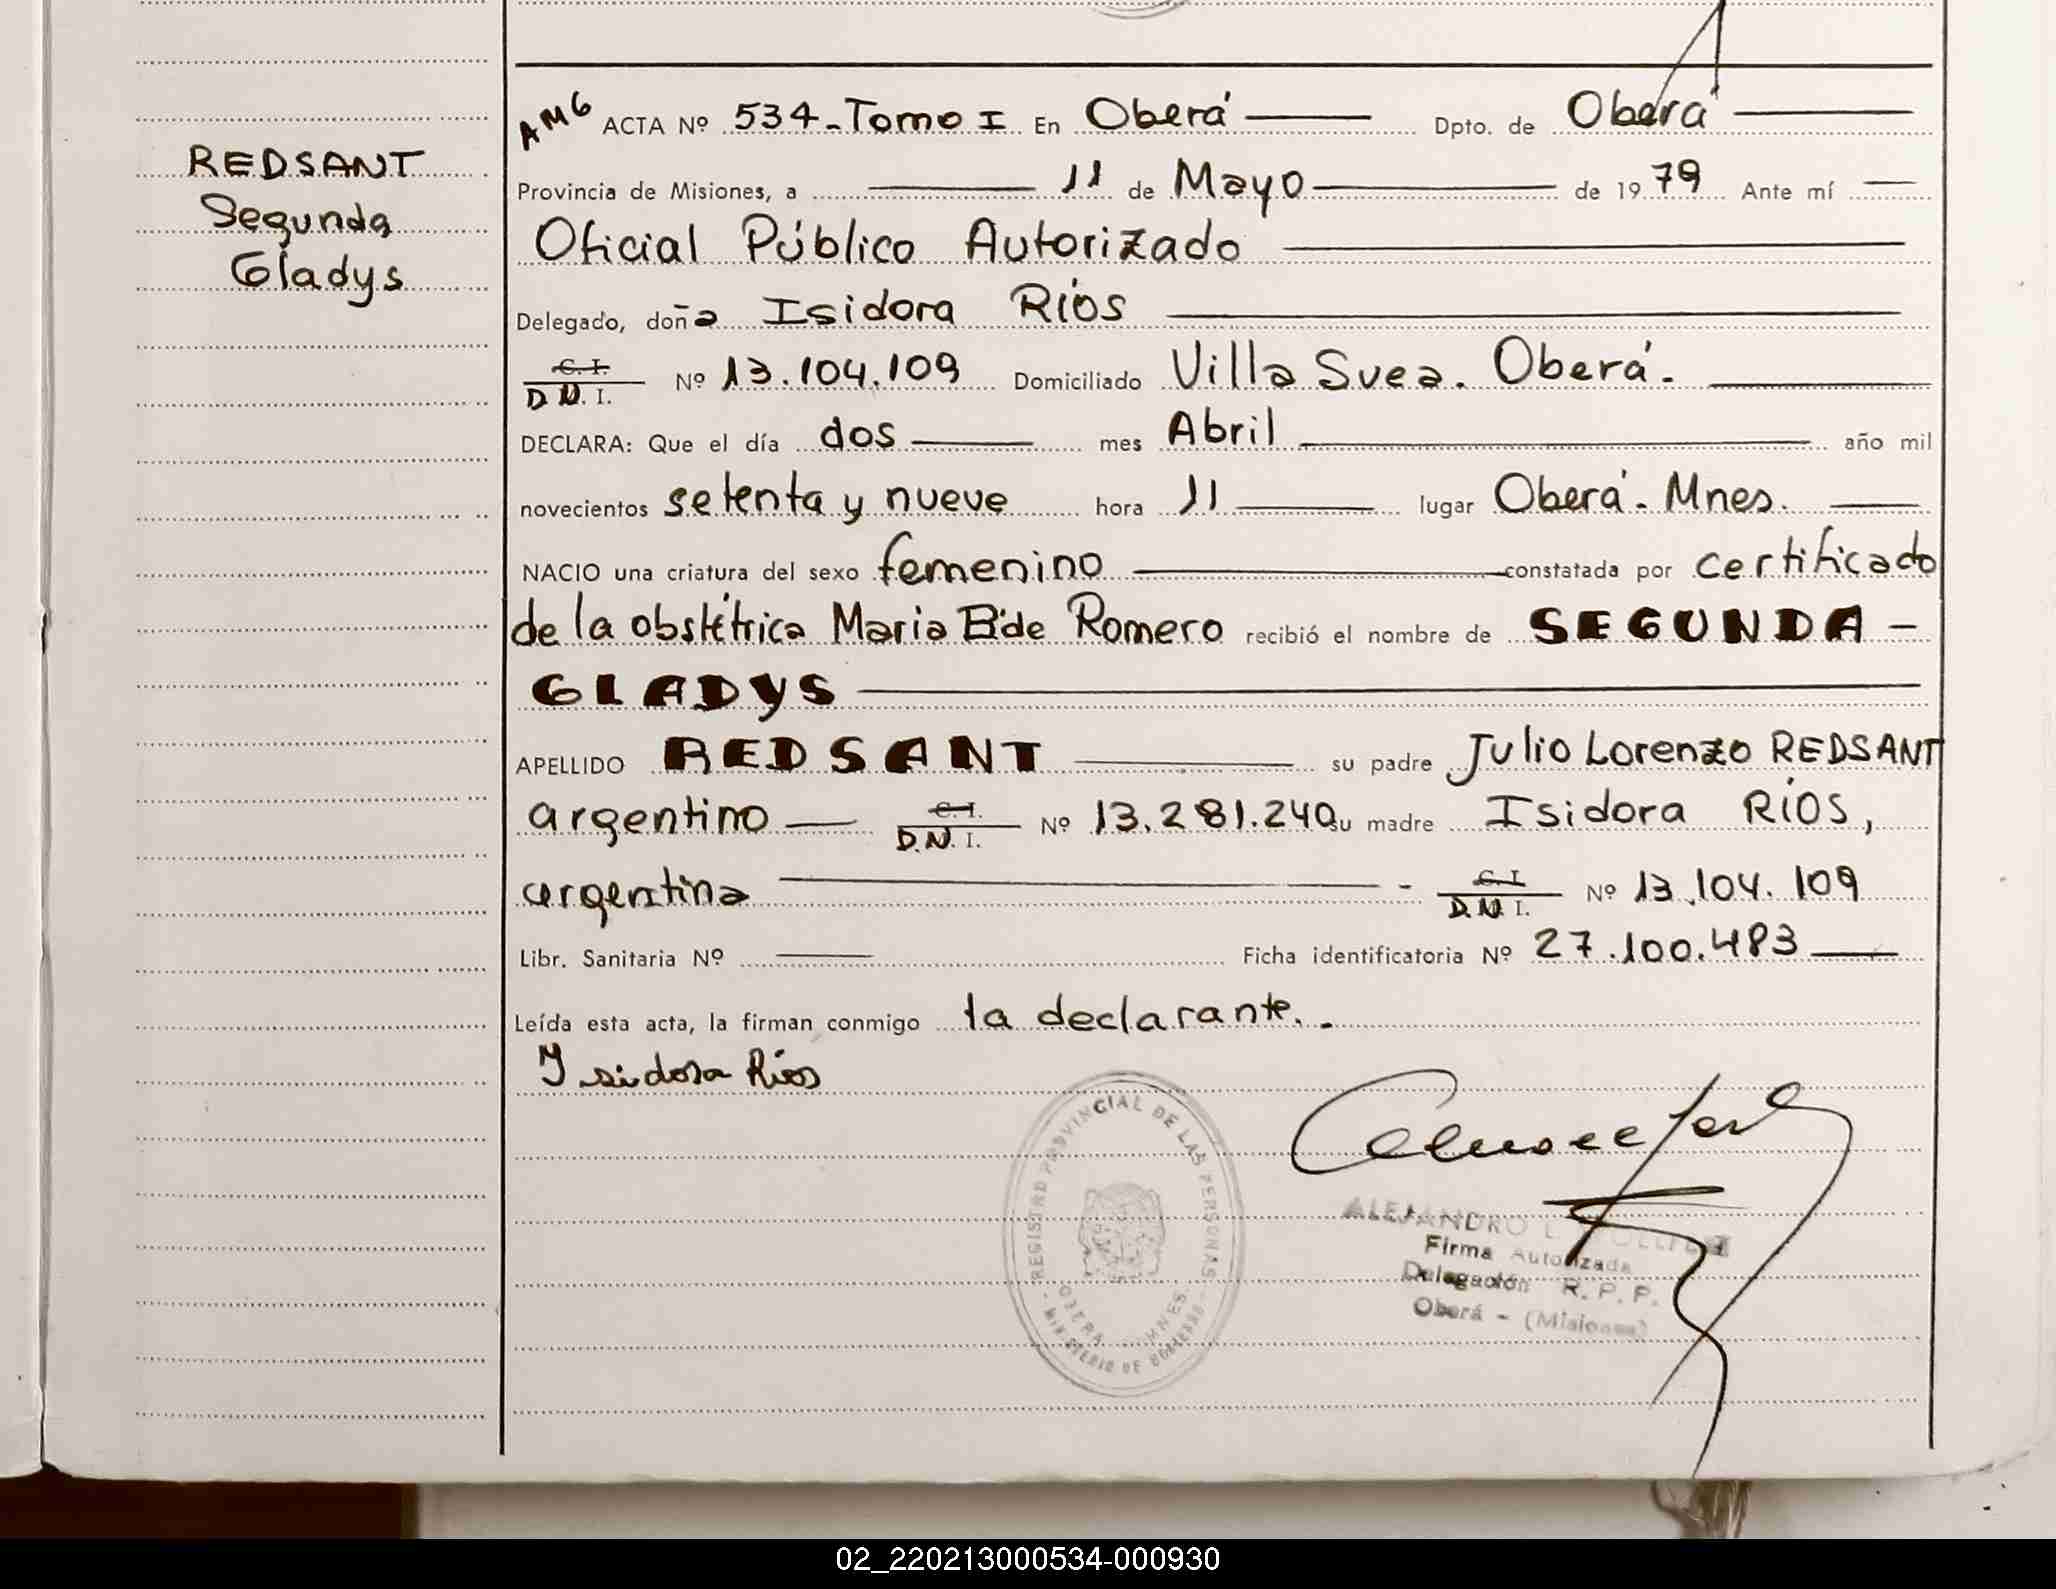 AMG ACTA Nº 534-Tomo I En Oberá Dpto. de Oberá
REDSANT
Segunda
Gladys
Provincia de Misiones, a 11 de Mayo de 1979 Ante mí
Oficial Público Autorizado
Delegado, doña Isidora Ríos
C. I.
D.N.I. Nº 13.104.109 Domiciliado Villa Svea. Oberá.
DECLARA: Que el día dos mes Abril año mil
novecientos setenta y nueve hora 11 lugar Oberá. Mnes.
NACIO una criatura del sexo femenino constatada por certificado
de la obstétrica Maria E. de Romero recibió el nombre de SEGUNDA -
GLADYS
APELLIDO REDSANT su padre Julio Lorenzo REDSANT
argentino C. I. D.N.I. Nº 13.281.240 su madre Isidora RÍOS,
argentina - C. I. D.N.I. Nº 13.104.109
Libr. Sanitaria Nº Ficha identificatoria Nº 27.100.483
Leída esta acta, la firman conmigo la declarante..
Isidora Ríos
REGISTRO PROVINCIAL DE LAS PERSONAS
OBERA MNES.
MINISTERIO DE GOBIERNO
ALEJANDRO
Firma Autorizada
Delegación R. P. P.
Oberá - (Misiones)
02_220213000534-000930